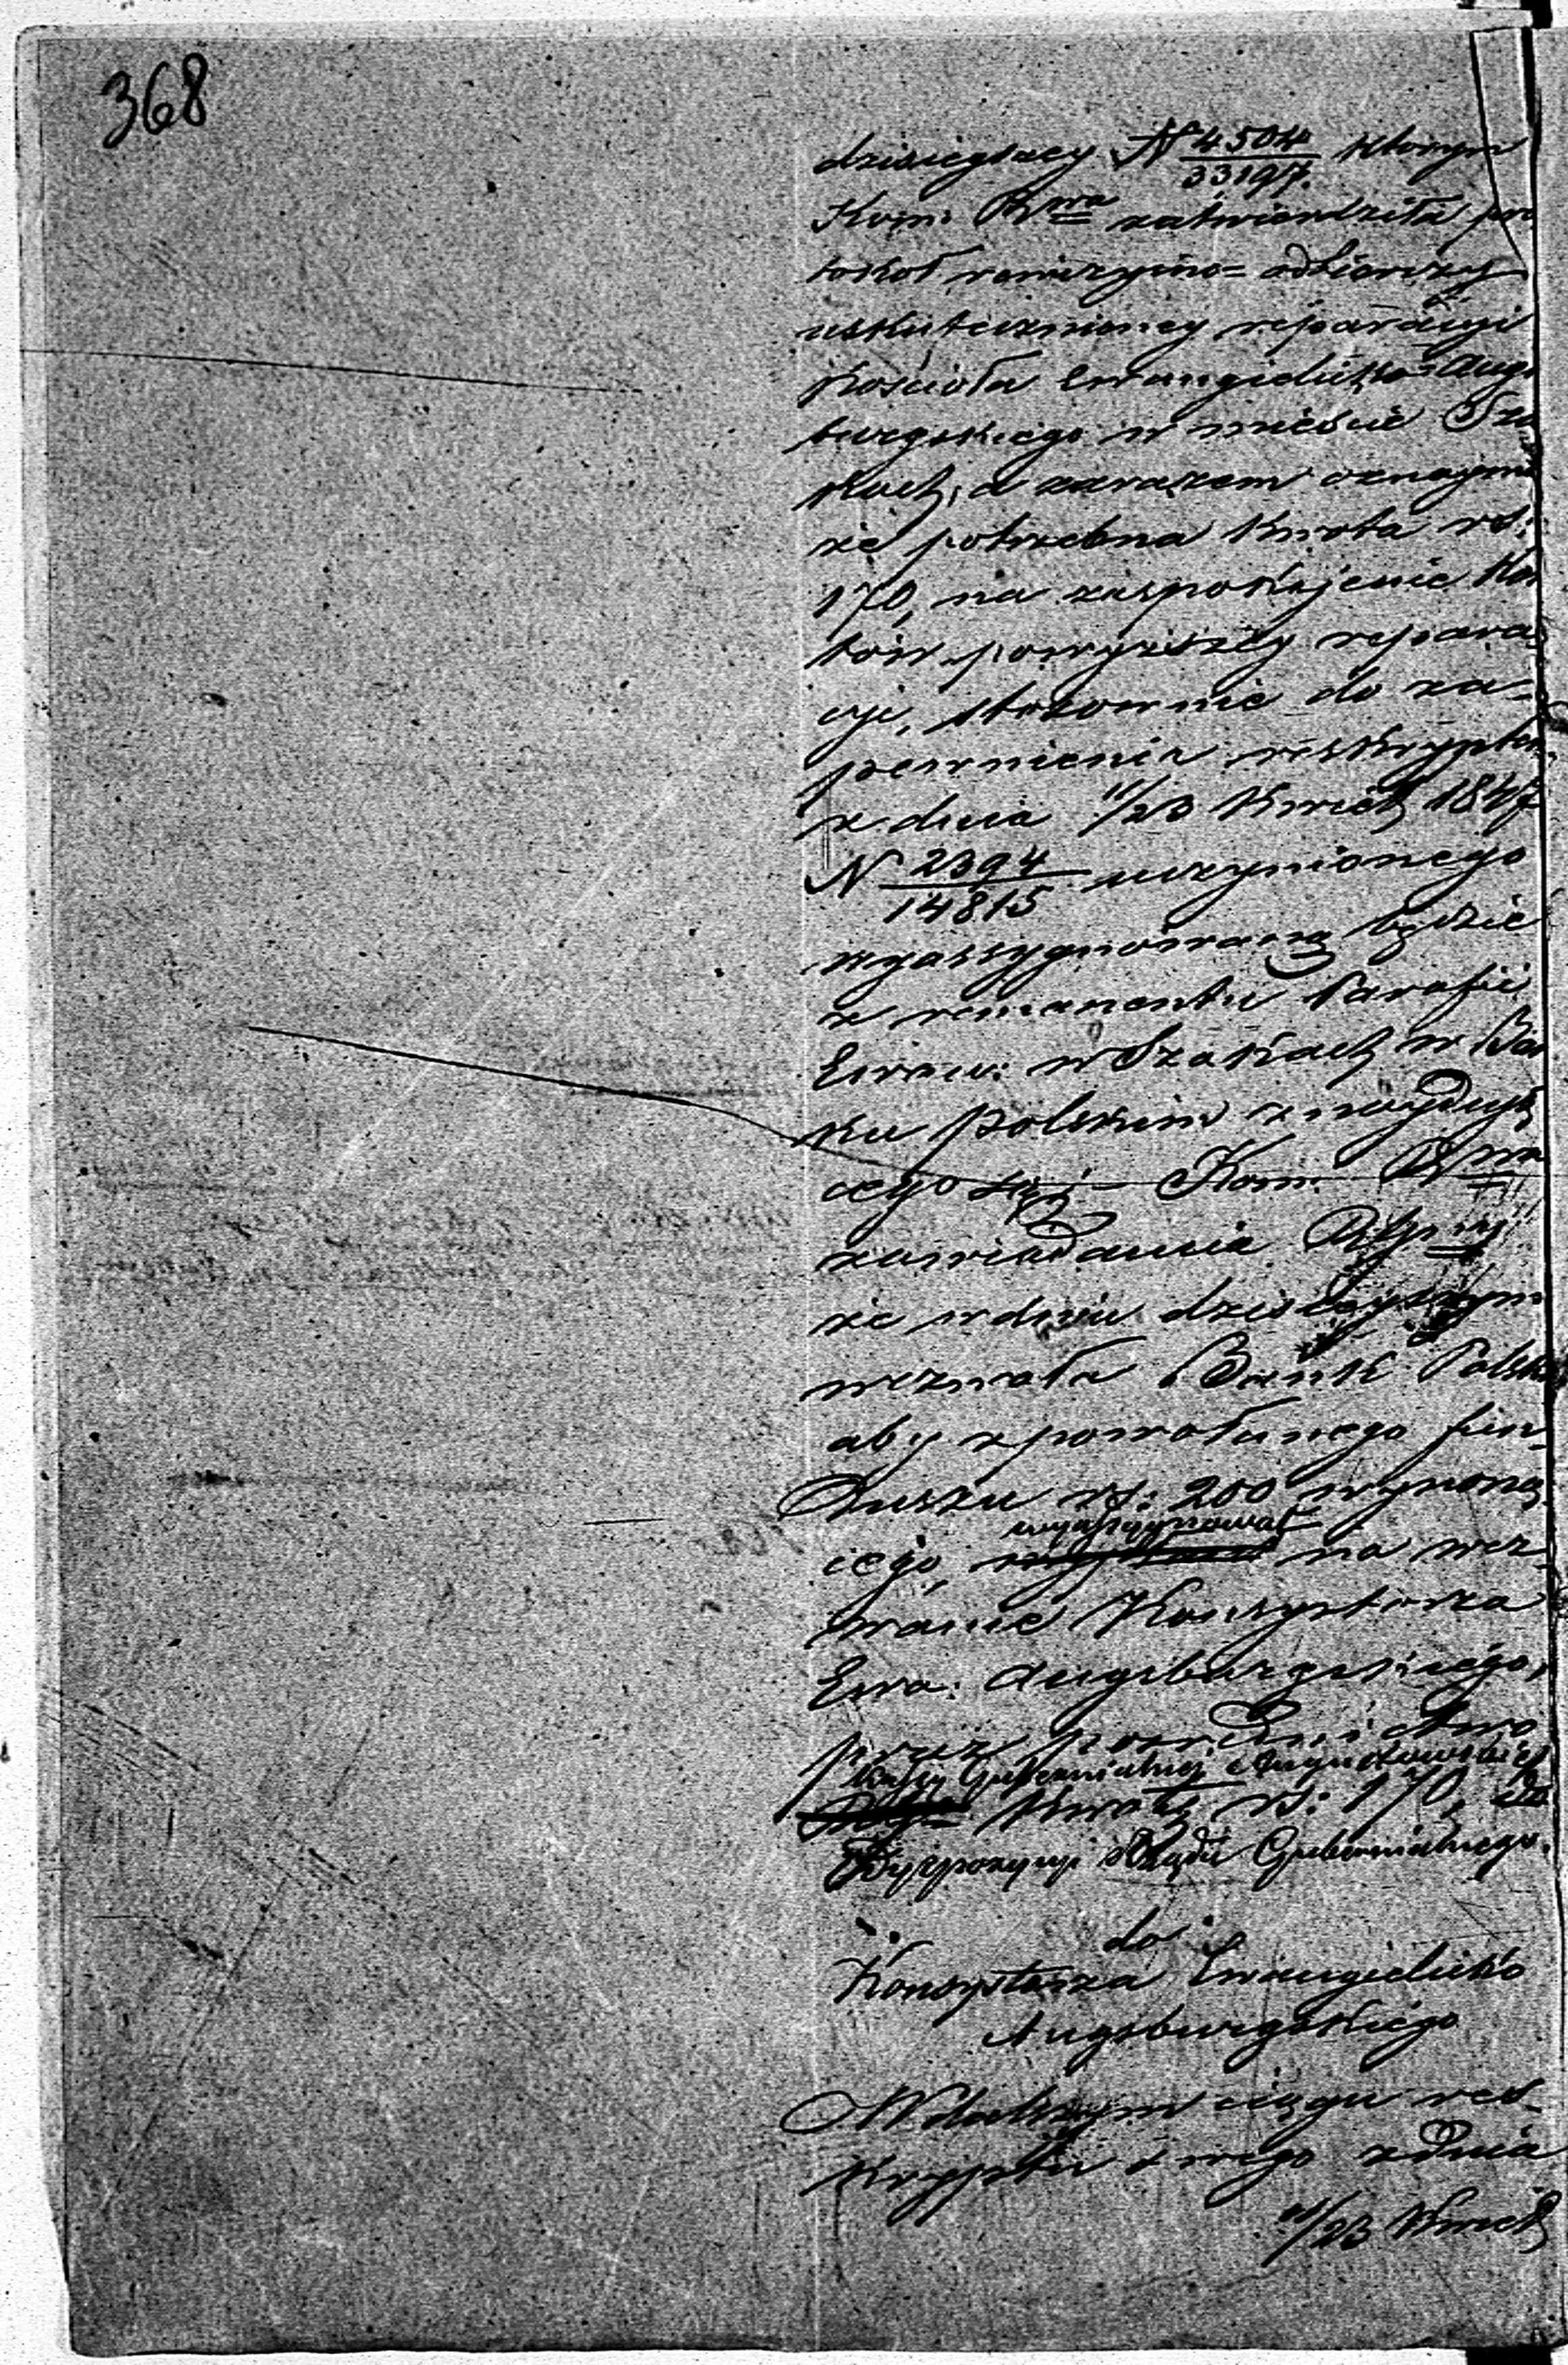 368
dzisiejszey N 4504/33197. którym
Kom: Rwa zatwierdziła pro
tokół rewizyjno= odbiorczy
uskutecznioney reparacyi
Kościoła Ewangielicko= Augs
burgskiego w mieście Sza
kach, a zarazem oznaymi
że potrzebna kwota rs:
170, na zaspokojenie Kos
tów powyższey repara=
cyi, stosownie do za=
pewnienia reskryptem
z dnia 11/23 Kwiet 1847
N 2394/14815 uczynionego
wyassygnowaną będzie
z remanentu Parafii
Ewan: w Szakach w Ban
ku Polskim znaydują
cego się – Kom: Rwa
zawiadamia
że w dniu dzisieyszym
wezwała Bank Polski
aby z powołanego fun=
duszu rs: 200 wynoszą
cego, wyassygnował na wez=
wanie Konsystorza
Ewa: Augsburgskiego,
przez pośrednictwo
Kassy Gubernialnej Augustowskiej
kwotę rs: 170, do
Dyspozycyi Rządu Gubernialnego.
do
Konsystorza Ewangielicko
Augsburgskiego
W dalszym ciągu res=
kryptu swego z dnia
11/23 Kwiet